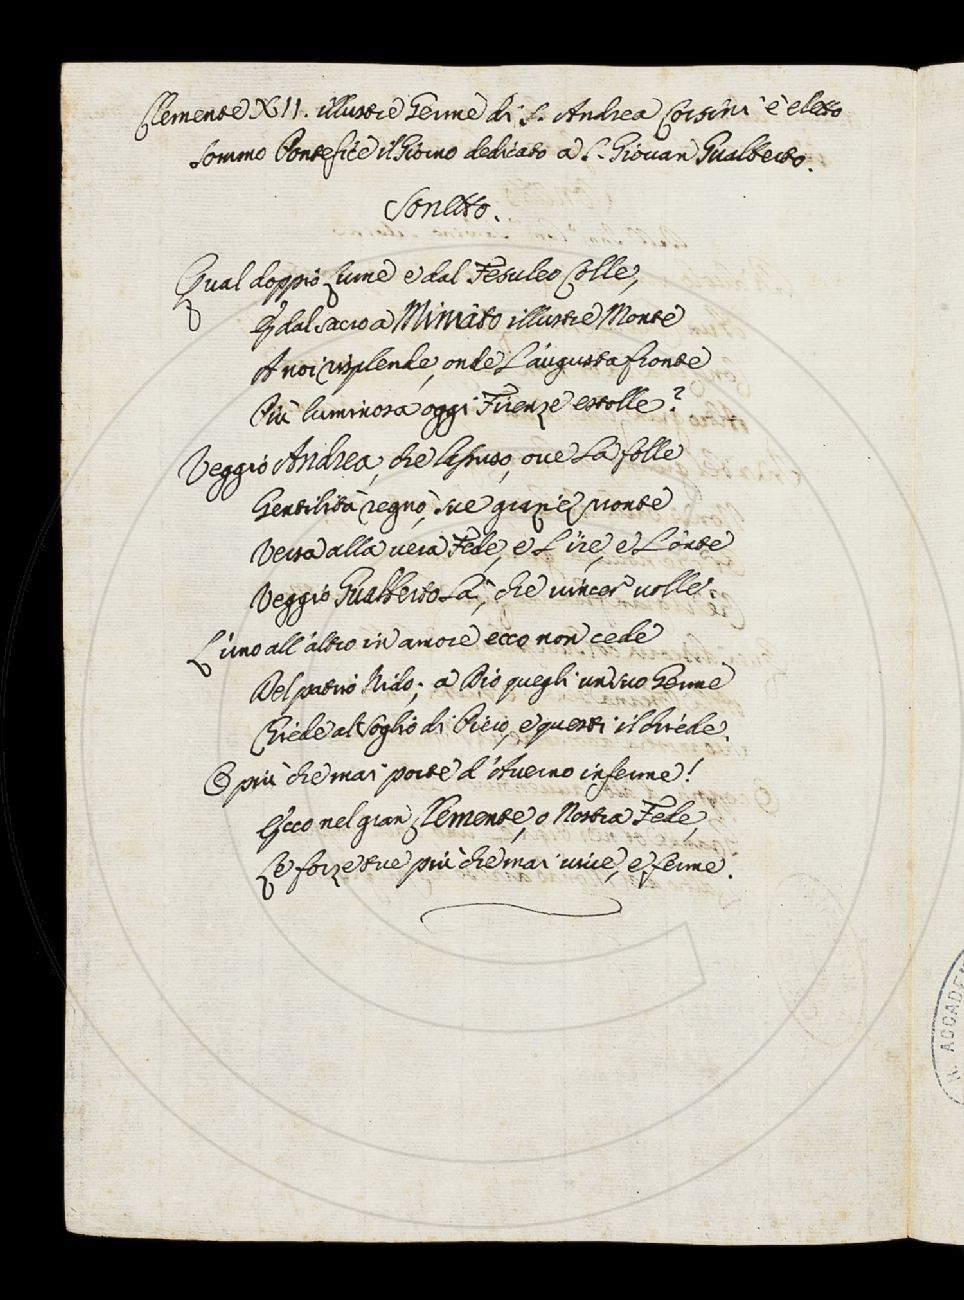 Clemente XII. illustre Germe di S. Andrea Corsini è eletto
sommo Pontefice il Giorno dedicato a S. Giovan Gualberto.
Sonetto.
Qual doppio Lume e dal Fesuleo Colle,
E dal sacro a Miniato illustre Monte
A noi risplende, onde L'augusta fronte
Più luminosa oggi Firenze estolle?
Veggio Andrea, che lassuso, ove La folle
Gentilità regnò, sue grazie pronte
Versa alla vera Fede, e L'ire, e L'onte
Veggio Gualberto Là, che vincer volle:
L'uno all'altro in amore ecco non cede
Del patrio Nido; a Dio quegli un suo Germe
Chiede al Soglio di Piero, e questi il chiede.
O più che mai porte d'Averno inferme!
Ecco nel gran Clemente, o Nostra Fede,
Le forze tue più che mai vive, e ferme.
N. ACCADEM